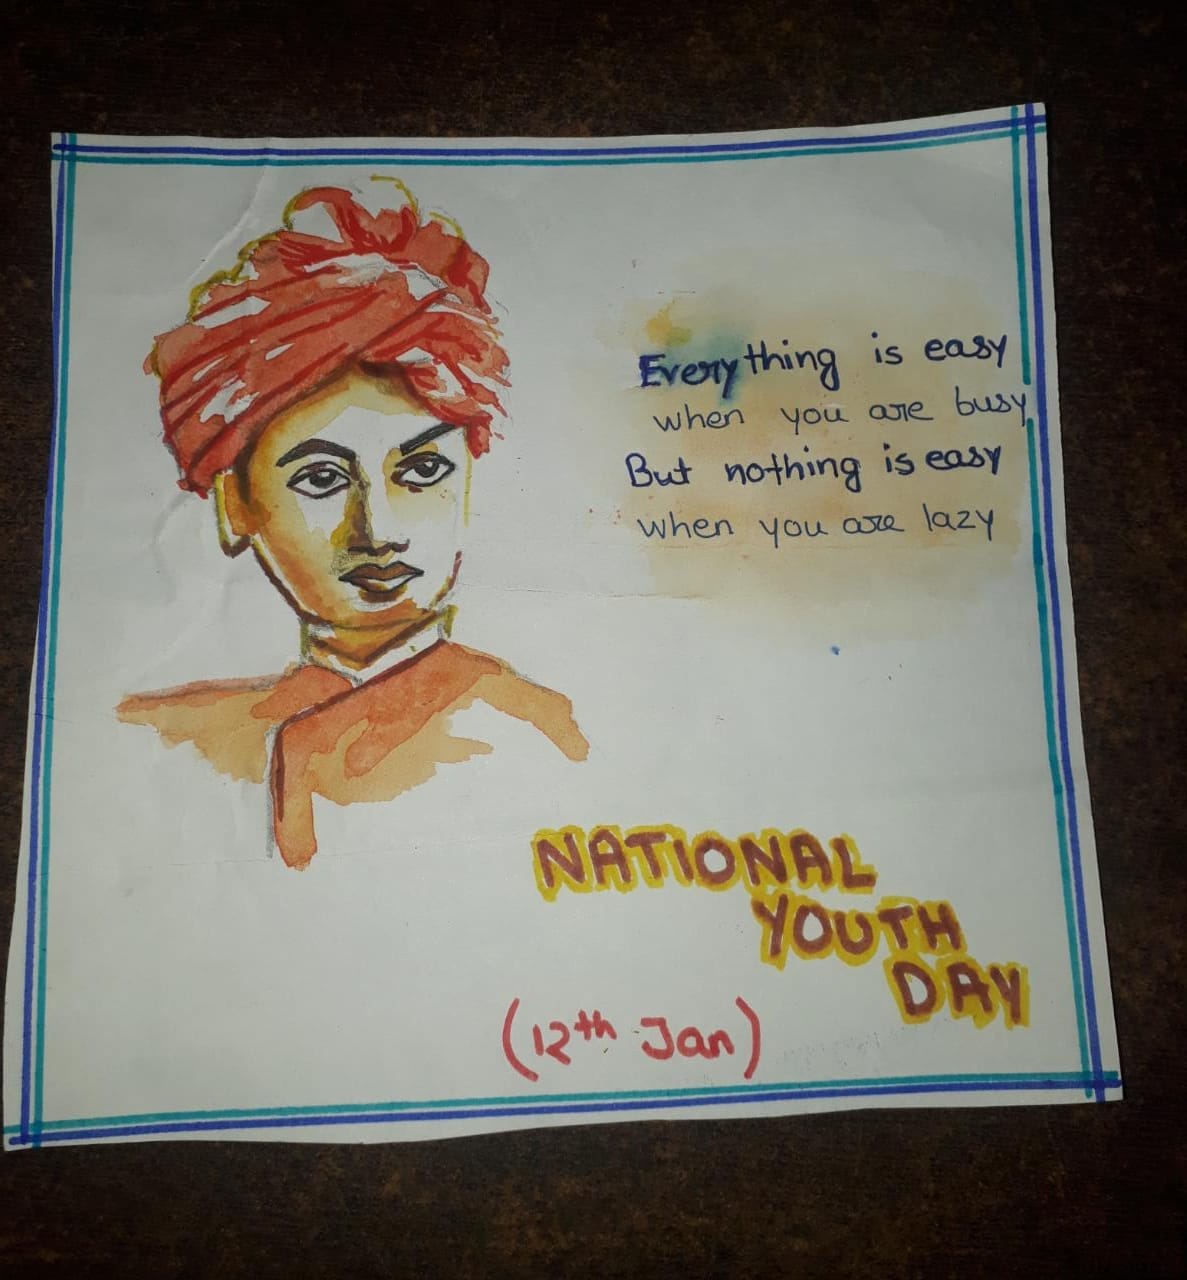 Everything is easy
when you are busy
But nothing is easy
when you are lazy
NATIONAL
YOUTH
DAY
(12th Jan)